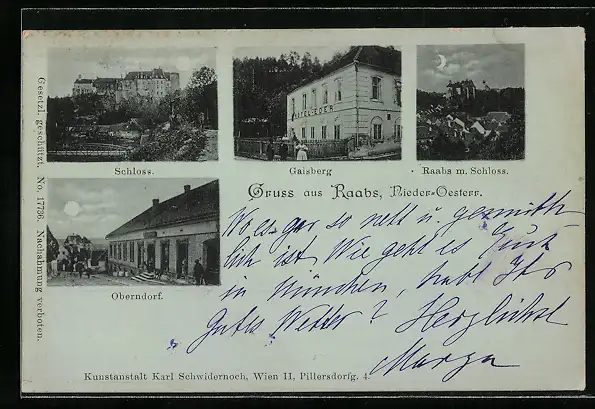 HOTEL EDER
Schloss.
Gaisberg
Raabs m. Schloss.
Oberndorf.
Gruss aus Raabs, Nieder-Oesterr.
Wo es gar so nett u. gemüth-
lich ist. Wie geht es Euch
in München, habt Ihr
Gutes Wetter? Herzlichst
Marga
Kunstanstalt Karl Schwidernoch, Wien II, Pillersdorfg. 4.
Gesetzl. geschützt. No. 17736. Nachahmung verboten.